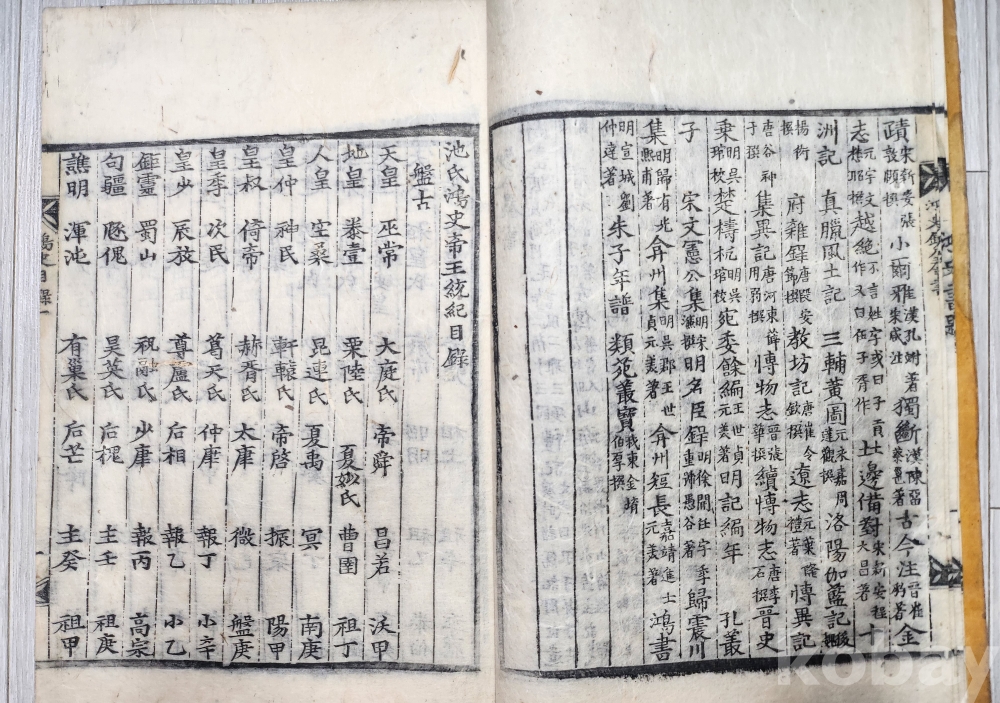 蹟宋新安張敦頤撰 小爾雅漢孔鮒著宋咸注 獨斷漢陳留蔡邕著 古今注晉崔豹著 金
志元宇文懋昭撰 越絶不言姓字或曰子貢作又曰伍子胥作 北邊備對朱新安程大昌著 十
洲記 真臘風土記 三輔黃圖元永嘉周達觀撰 洛陽伽藍記後魏
楊衒撰 府雜錄唐段安節撰 教坊記唐崔令欽撰 遼志元葉隆禮著 博異記
唐谷神子撰 集異記唐河東薛用弱撰 博物志晉張華撰 續博物志唐李石撰 晉史
乘明吳琯校 楚檮杌明吳琯校 宛委餘編王世貞元美著 明記編年 孔叢
子 宋文憲公集明宋 明名臣錄明徐開任字季重 愚谷著 歸震川
集明歸有光熙甫著 弇州集明吳郡王世貞元美著 弇州短長嘉靖進士元美著 鴻書
明宣城劉仲達著 朱子年譜 類苑叢寶我東金堉伯厚撰
池氏鴻史帝王統紀目錄
盤古
天皇 巫常 大庭氏 帝舜 昌若 沃甲
地皇 泰壹 栗陸氏 夏姒氏 曹圉 祖丁
人皇 空桑 昆連氏 夏禹 冥 南庚
皇仲 神民 軒轅氏 帝啓 振 陽甲
皇叔 倚帝 赫胥氏 太康 微 盤庚
皇季 次民 葛天氏 仲康 報丁 小辛
皇少 辰放 尊盧氏 后相 報乙 小乙
鉅靈 蜀山 祝融氏 少康 報丙 高宗
句疆 豗傀 吳英氏 后槐 主壬 祖庚
譙明 渾沌 有巢氏 后芒 主癸 祖甲
鴻史目錄
kobay